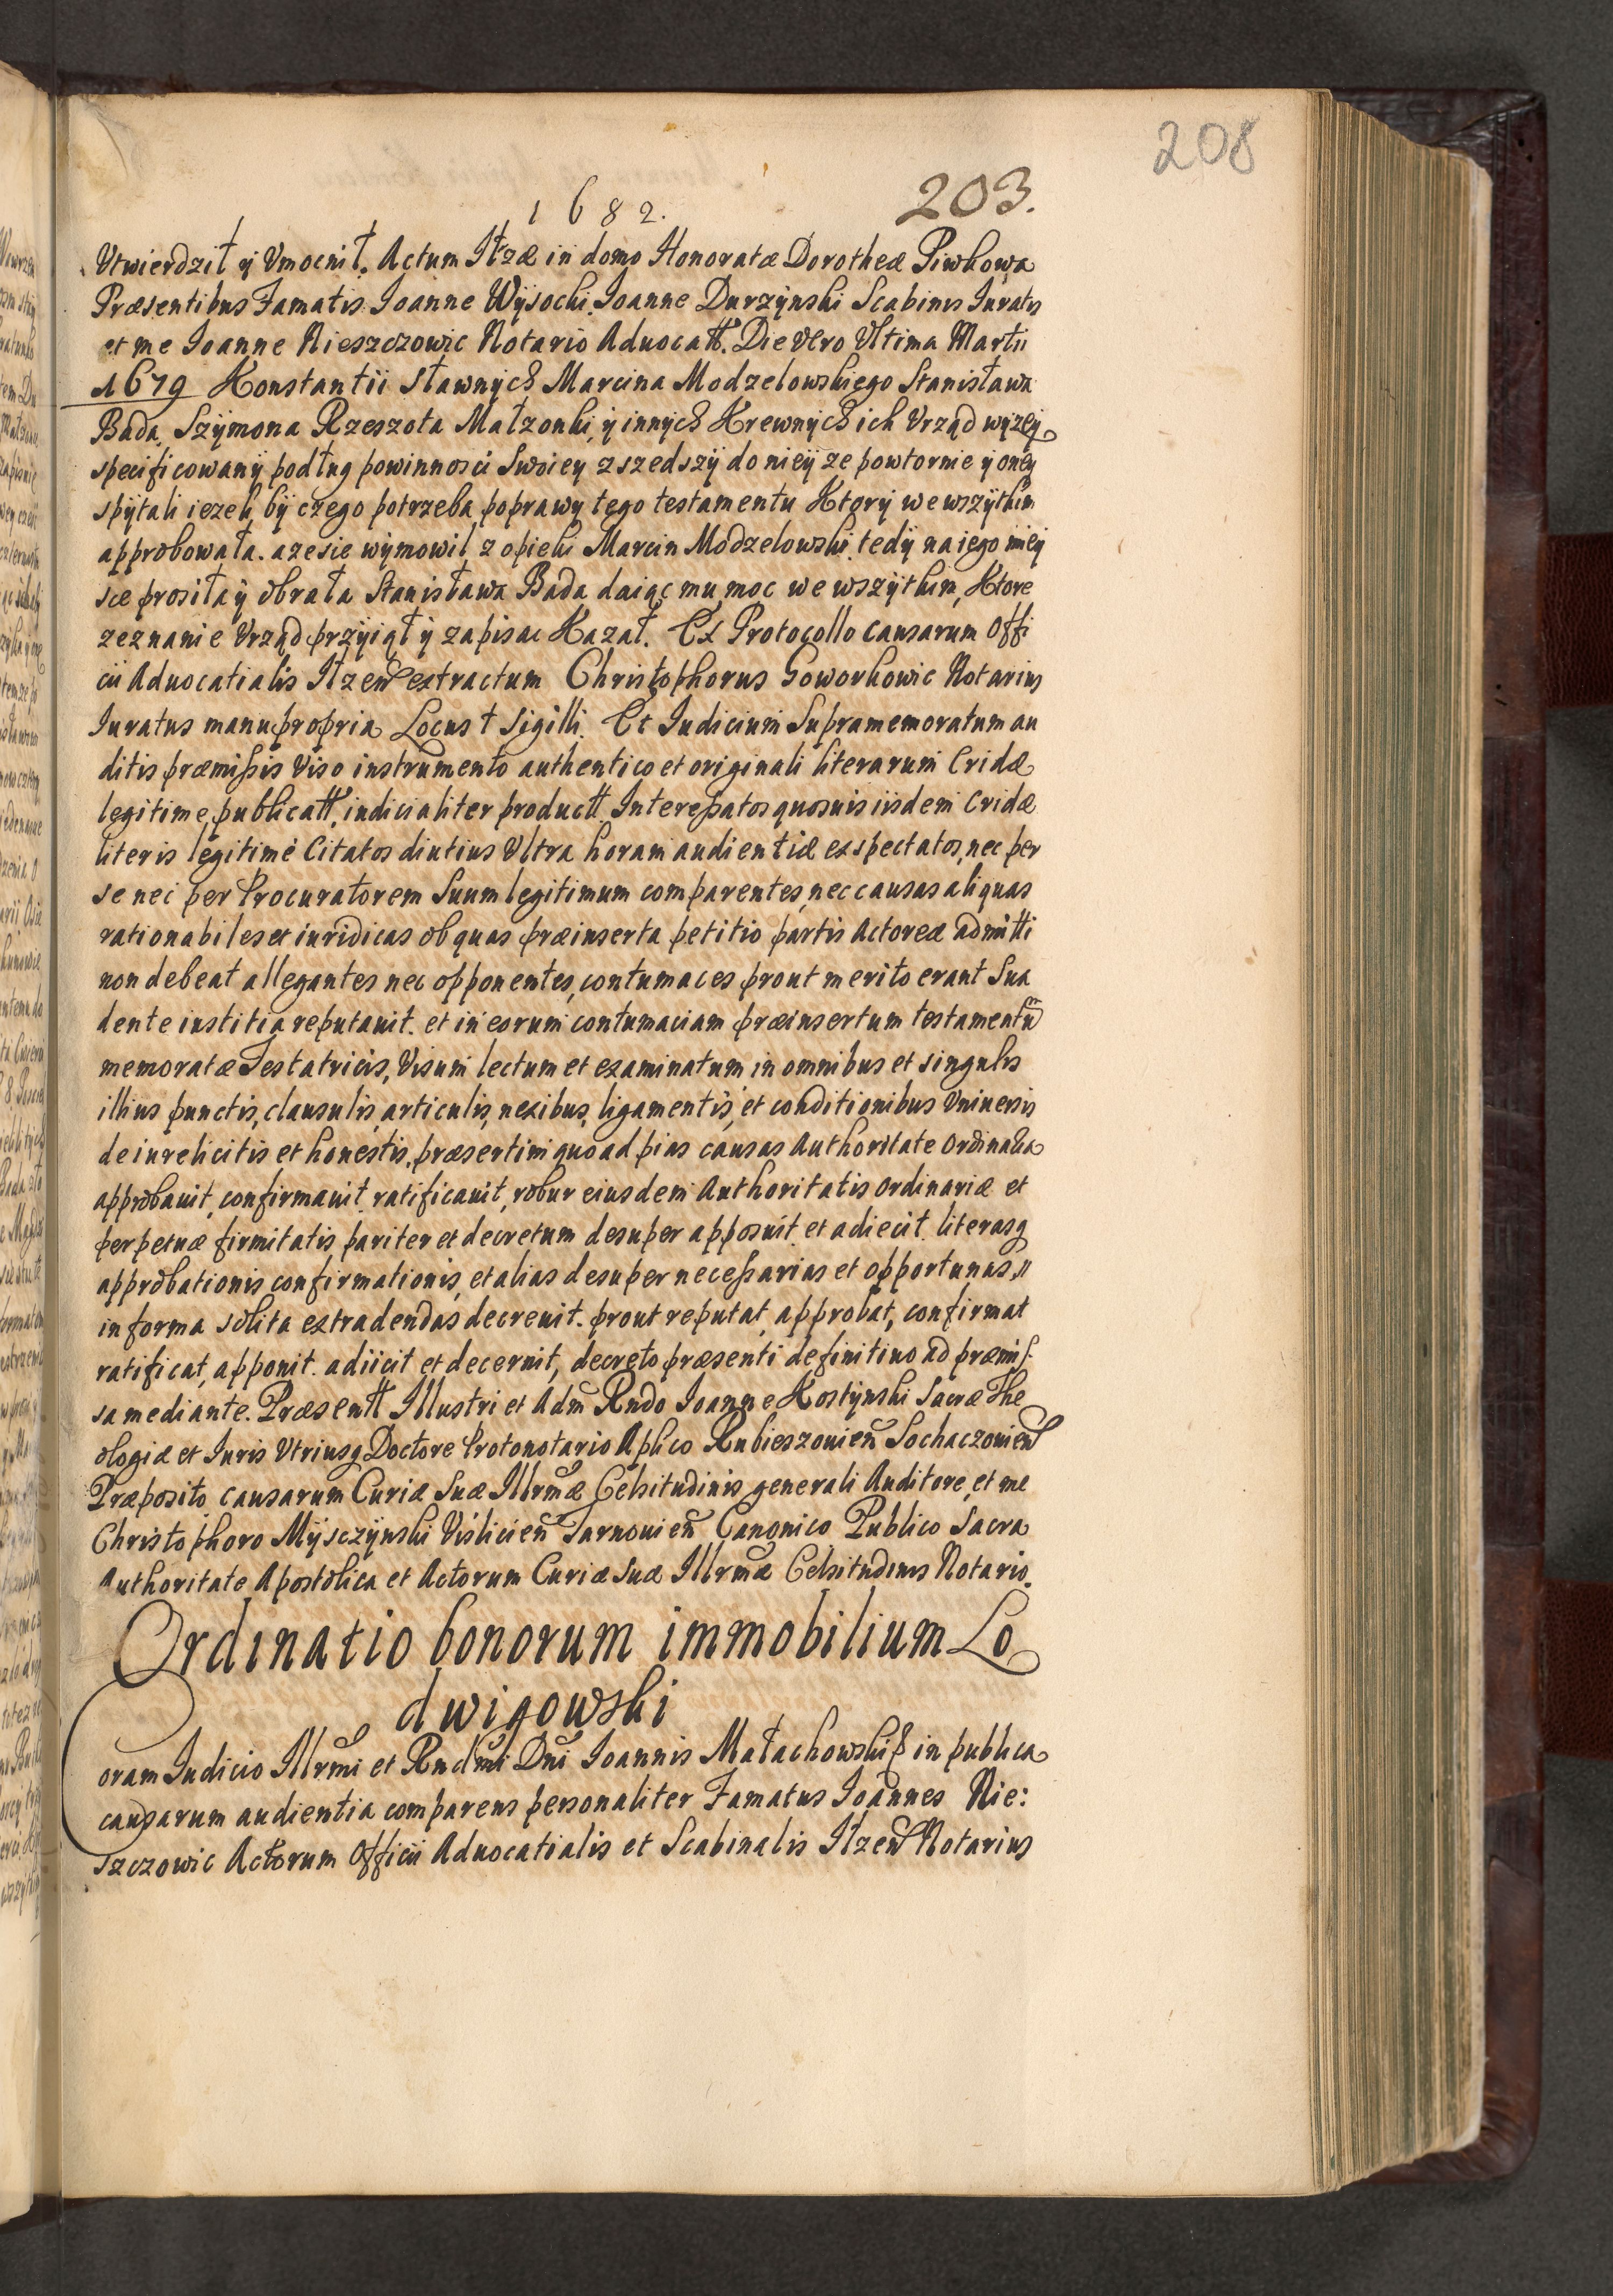 208
203.
1682.
Utwierdził ÿ Umocnił. Actum Ilzæ in domo Honoratæ Dorotheæ Piwkowa
Præsentibus Famatis Ioanne Wÿsocki, Ioanne Durzÿnski Scabinis Iuratis
et me Ioanne Nieszczowic Notario Aduocatt. Die Vero Vltima Martii
1679 Konstantii Sławnÿch Marcina Modzelowskiego Stanisława
Bada, Szÿmona Rzeszota Małzonki, ÿ innÿch Krewnÿch ich Vrząd wÿzeÿ
specificowanÿ podług powinnosci Swoiey zszedszÿ do nieÿ ze powtornie ÿ oneÿ
spÿtali iezeli bÿ czego potrzeba poprawy tego testamentu Ktorÿ we wszÿtkim
approbowała. a ze sie wÿmowił z opieki Marcin Modzelowski tedÿ na iego mieÿ
sce prosiła ÿ obrała Stanisława Bada daiąc mu moc we wszÿtkim, Ktore
zeznanie Vrząd przÿiął ÿ zapisac Kazał. Ex Protocollo causarum Offi
cii Aduocatialis Ilzeñ extractum Christophorus Goworkowic Notarius
Iuratus manu propria Locus † Sigilli. Et Iudicium Supramemoratum au
ditis præmissis Viso instrumento authentico et originali literarum Cridæ
legitime publicatt, iudicialiter productt Interessatos quosuis iisdem Cridæ
literis legitimé Citatos diutius Vltra horam audientiæ exspectatos, nec per
se nec per Procuratorem Suum legitimum comparentes, nec causas aliquas
rationabiles et iuridicas ob quas præinserta petitio partis Actoreæ admitti
non debeat allegantes nec opponentes, contumaces prout merito erant Sua
dente iustitia reputauit. et in eorum contumaciam præinsertum testamentũ
memoratæ Testatricis, Visum lectum et examinatum in omnibus et singulis
illius punctis, clausulis, articulis, nexibus, ligamentis, et conditionibus Vniuersis
de iure licitis et honestis, præsertim quo ad pias causas Authoritate Ordinaria
approbauit, confirmauit, ratificauit, robur eiusdem Authoritatis ordinariæ et
perpetuæ firmitatis pariter et decretum desuper apposuit et adiecit literasq
approbationis confirmationis, et alias desuper necessarias et opportunas,
in forma solita extradendas decreuit. prout reputat, approbat, confirmat
ratificat, apponit. adiicit et decernit, decreto præsenti definitiuo ad præmis
sa mediante. Præsentt Illustri et Adm̃ Rndo Ioanne Kostÿnski Sacræ The
ologiæ et Iuris Vtriusq Doctore Protonotario Aplico Rubieszouieñ Sochaczouieñ
Præposito causarum Curiæ Suæ Illrm̃æ Celsitudinis generali Auditore, et me
Christophoro Mÿsczÿnski Visliceñ Tarnouieñ Canonico Publico Sacra
Authoritate Apostolica et Actorum Curiæ Suæ Illrm̃æ Celsitudinis Notario.
Ordinatio bonorum immobilium Lo
dwigowski
Coram Iudicio Illrm̃i et Rndm̃i Dñi Ioannis Małachowski in publica
causarum audientia comparens personaliter Famatus Ioannes Nie:
szczowic Actorum Officii Aduocatialis et Scabinalis Ilzeñ Notarius